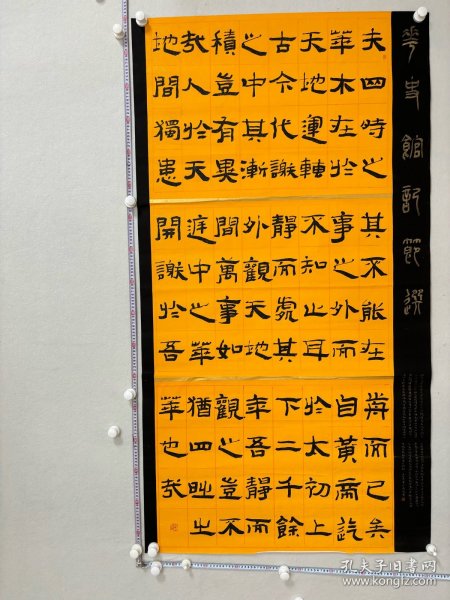 華史館記節選
夫四時之
華木在於
天地運轉
古今代謝
之中其漸
積豈有異
哉人於天
地間獨患
其不能在
事之外而
不知止耳
靜而處其
外觀天地
間萬事如
庭中之華
開謝於吾
前而已矣
自黃帝迄
於太初上
下二千餘
年吾靜而
觀之豈不
猶四時之
華也哉
孔夫子旧书网
www.kongfz.com